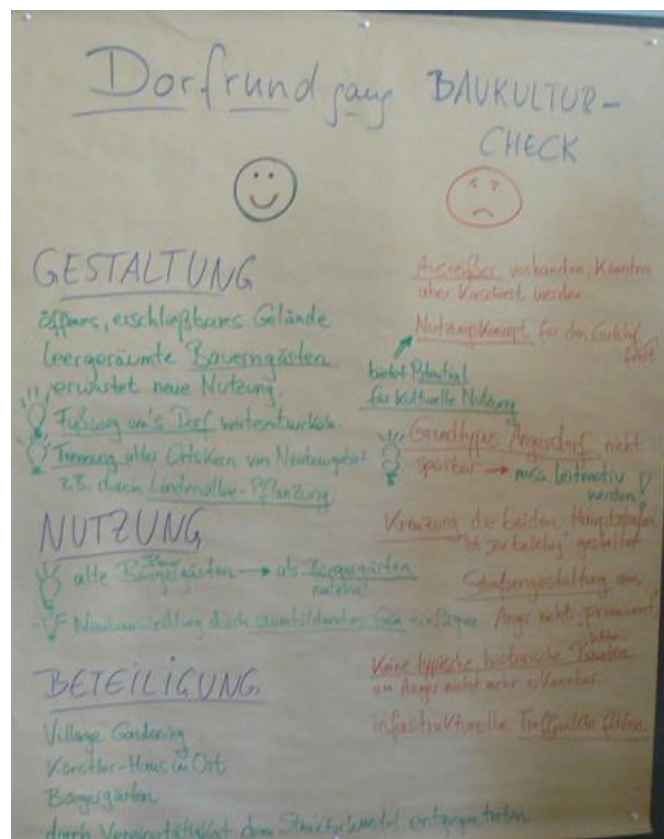 Dorfrundgang BAUKULTUR-
CHECK
GESTALTUNG
öffnes, erschließbares Gelände
leergeräumte Bauerngärten
erwartet neue Nutzung.
Fußweg um's Dorf weiterentwickeln
Trennung alter Ortskern von Neubaugebiet
z.B. durch Lindenallee-Pflanzung
NUTZUNG
alte → als Bürgergärten
Neubausiedlung durch einfügen
BETEILIGUNG
Village Gardening
Künstler-Haus im Ort
Bürgergärten
durch Vereinstätigkeit dem Strukturwandel entgegentreten
Ausreißer vorhanden, könnten
aber kaschiert werden
Nutzungskonzept für den Gutshof
fehlt
bietet Potential
für kulturelle Nutzung
Grundtypus Angerdorf nicht
spürbar → muss Leitmotiv
werden!
Kreuzung der beiden Hauptstraßen
ist gestaltet
Straßengestaltung am
Anger nicht prominent
Keine typische historische
am Anger nicht mehr erkennbar
infrastrukturelle Treffpunkte fehlen